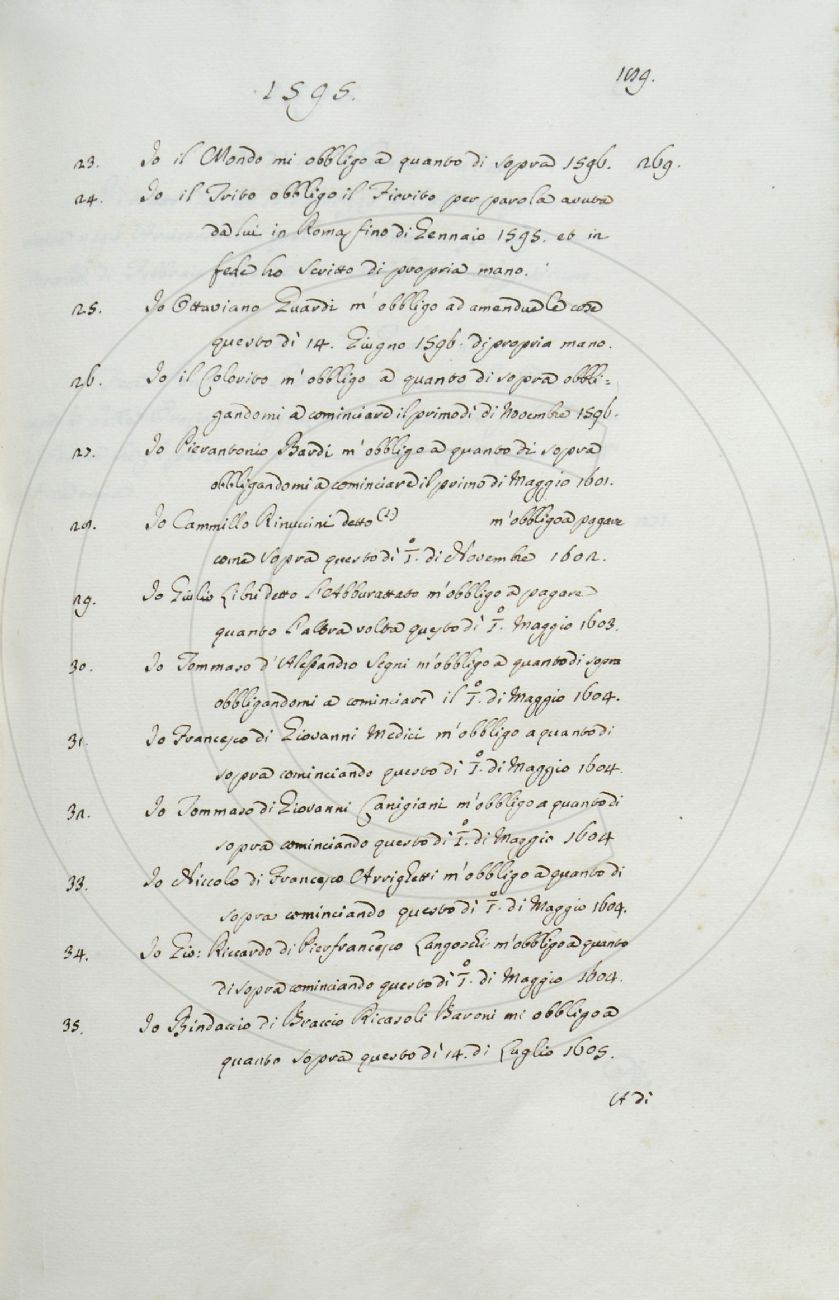 1595.
109.
23. Io il Mondo mi obbligo a quanto di sopra 1596. 269.
24. Io il Trito obbligo il Fiorito per parola avuta
da lui in Roma fino di Gennaio 1595. et in
fede ho scritto di propria mano.
25. Io Ottaviano Guardi m'obbligo ad amendue le cose
questo dì 14. Giugno 1596. di propria mano.
26. Io il Colorito m'obbligo a quanto di sopra obbli=
gandomi a cominciare il primo dì di Novembre 1596.
27. Io Pierantonio Bardi m'obbligo a quanto di sopra
obbligandomi a cominciare il primo di Maggio 1601.
28. Io Cammillo Rinuccini detto (1) m'obbligo a pagare
come sopra questo dì I.° di Novembre 1602.
29. Io Giulio Libri detto l'Abburattato m'obbligo a pagare
quanto l'altra volta questo dì I.° Maggio 1603.
30. Io Tommaso d'Alessandro Segni m'obbligo a quanto di sopra
obbligandomi a cominciare il I.° di Maggio 1604.
31. Io Francesco di Giovanni Medici m'obbligo a quanto di
sopra cominciando questo dì I.° di Maggio 1604.
32. Io Tommaso di Giovanni Canigiani m'obbligo a quanto di
sopra cominciando questo dì I.° di Maggio 1604
33. Io Niccolo di Francesco Arrighetti m'obbligo a quanto di
sopra cominciando questo dì I.° di Maggio 1604.
34. Io Gio: Riccardo di Pierfrancesco m'obbligo a quanto
di sopra cominciando questo dì I.° di Maggio 1604.
35. Io Bindaccio di Braccio Ricasoli Baroni mi obbligo a
quanto sopra questo dì 14. di Luglio 1605.
A di